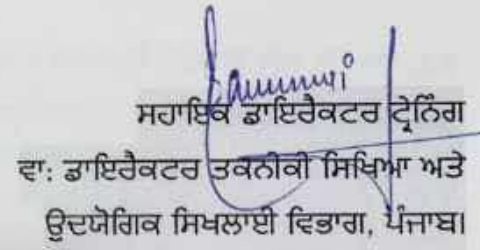 ਸਹਾਇਕ ਡਾਇਰੈਕਟਰ ਟ੍ਰੇਨਿੰਗ
ਵਾ: ਡਾਇਰੈਕਟਰ ਤਕਨੀਕੀ ਸਿਖਿਆ ਅਤੇ
ਉਦਯੋਗਿਕ ਸਿਖਲਾਈ ਵਿਭਾਗ, ਪੰਜਾਬ।